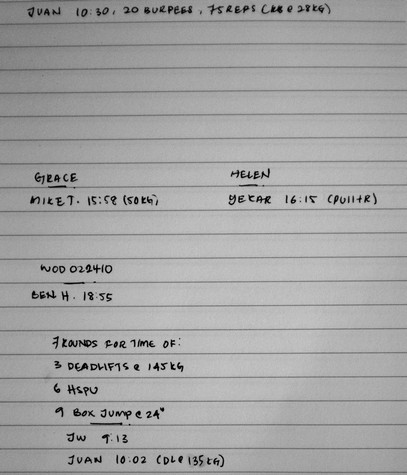 JUAN 10:30, 20 BURPEES, 75 REPS (KB @ 28KG)
GRACE
MIKE T. 15:58 (50KG)
HELEN
YEKAR 16:15 (PUll+R)
WOD 022410
BEN H. 18:55
7 ROUNDS FOR TIME OF:
3 DEADLIFTS @ 145KG
6 HSPU
9 BOX JUMP @ 24"
JW 9:13
JUAN 10:02 (DL@ 135KG)